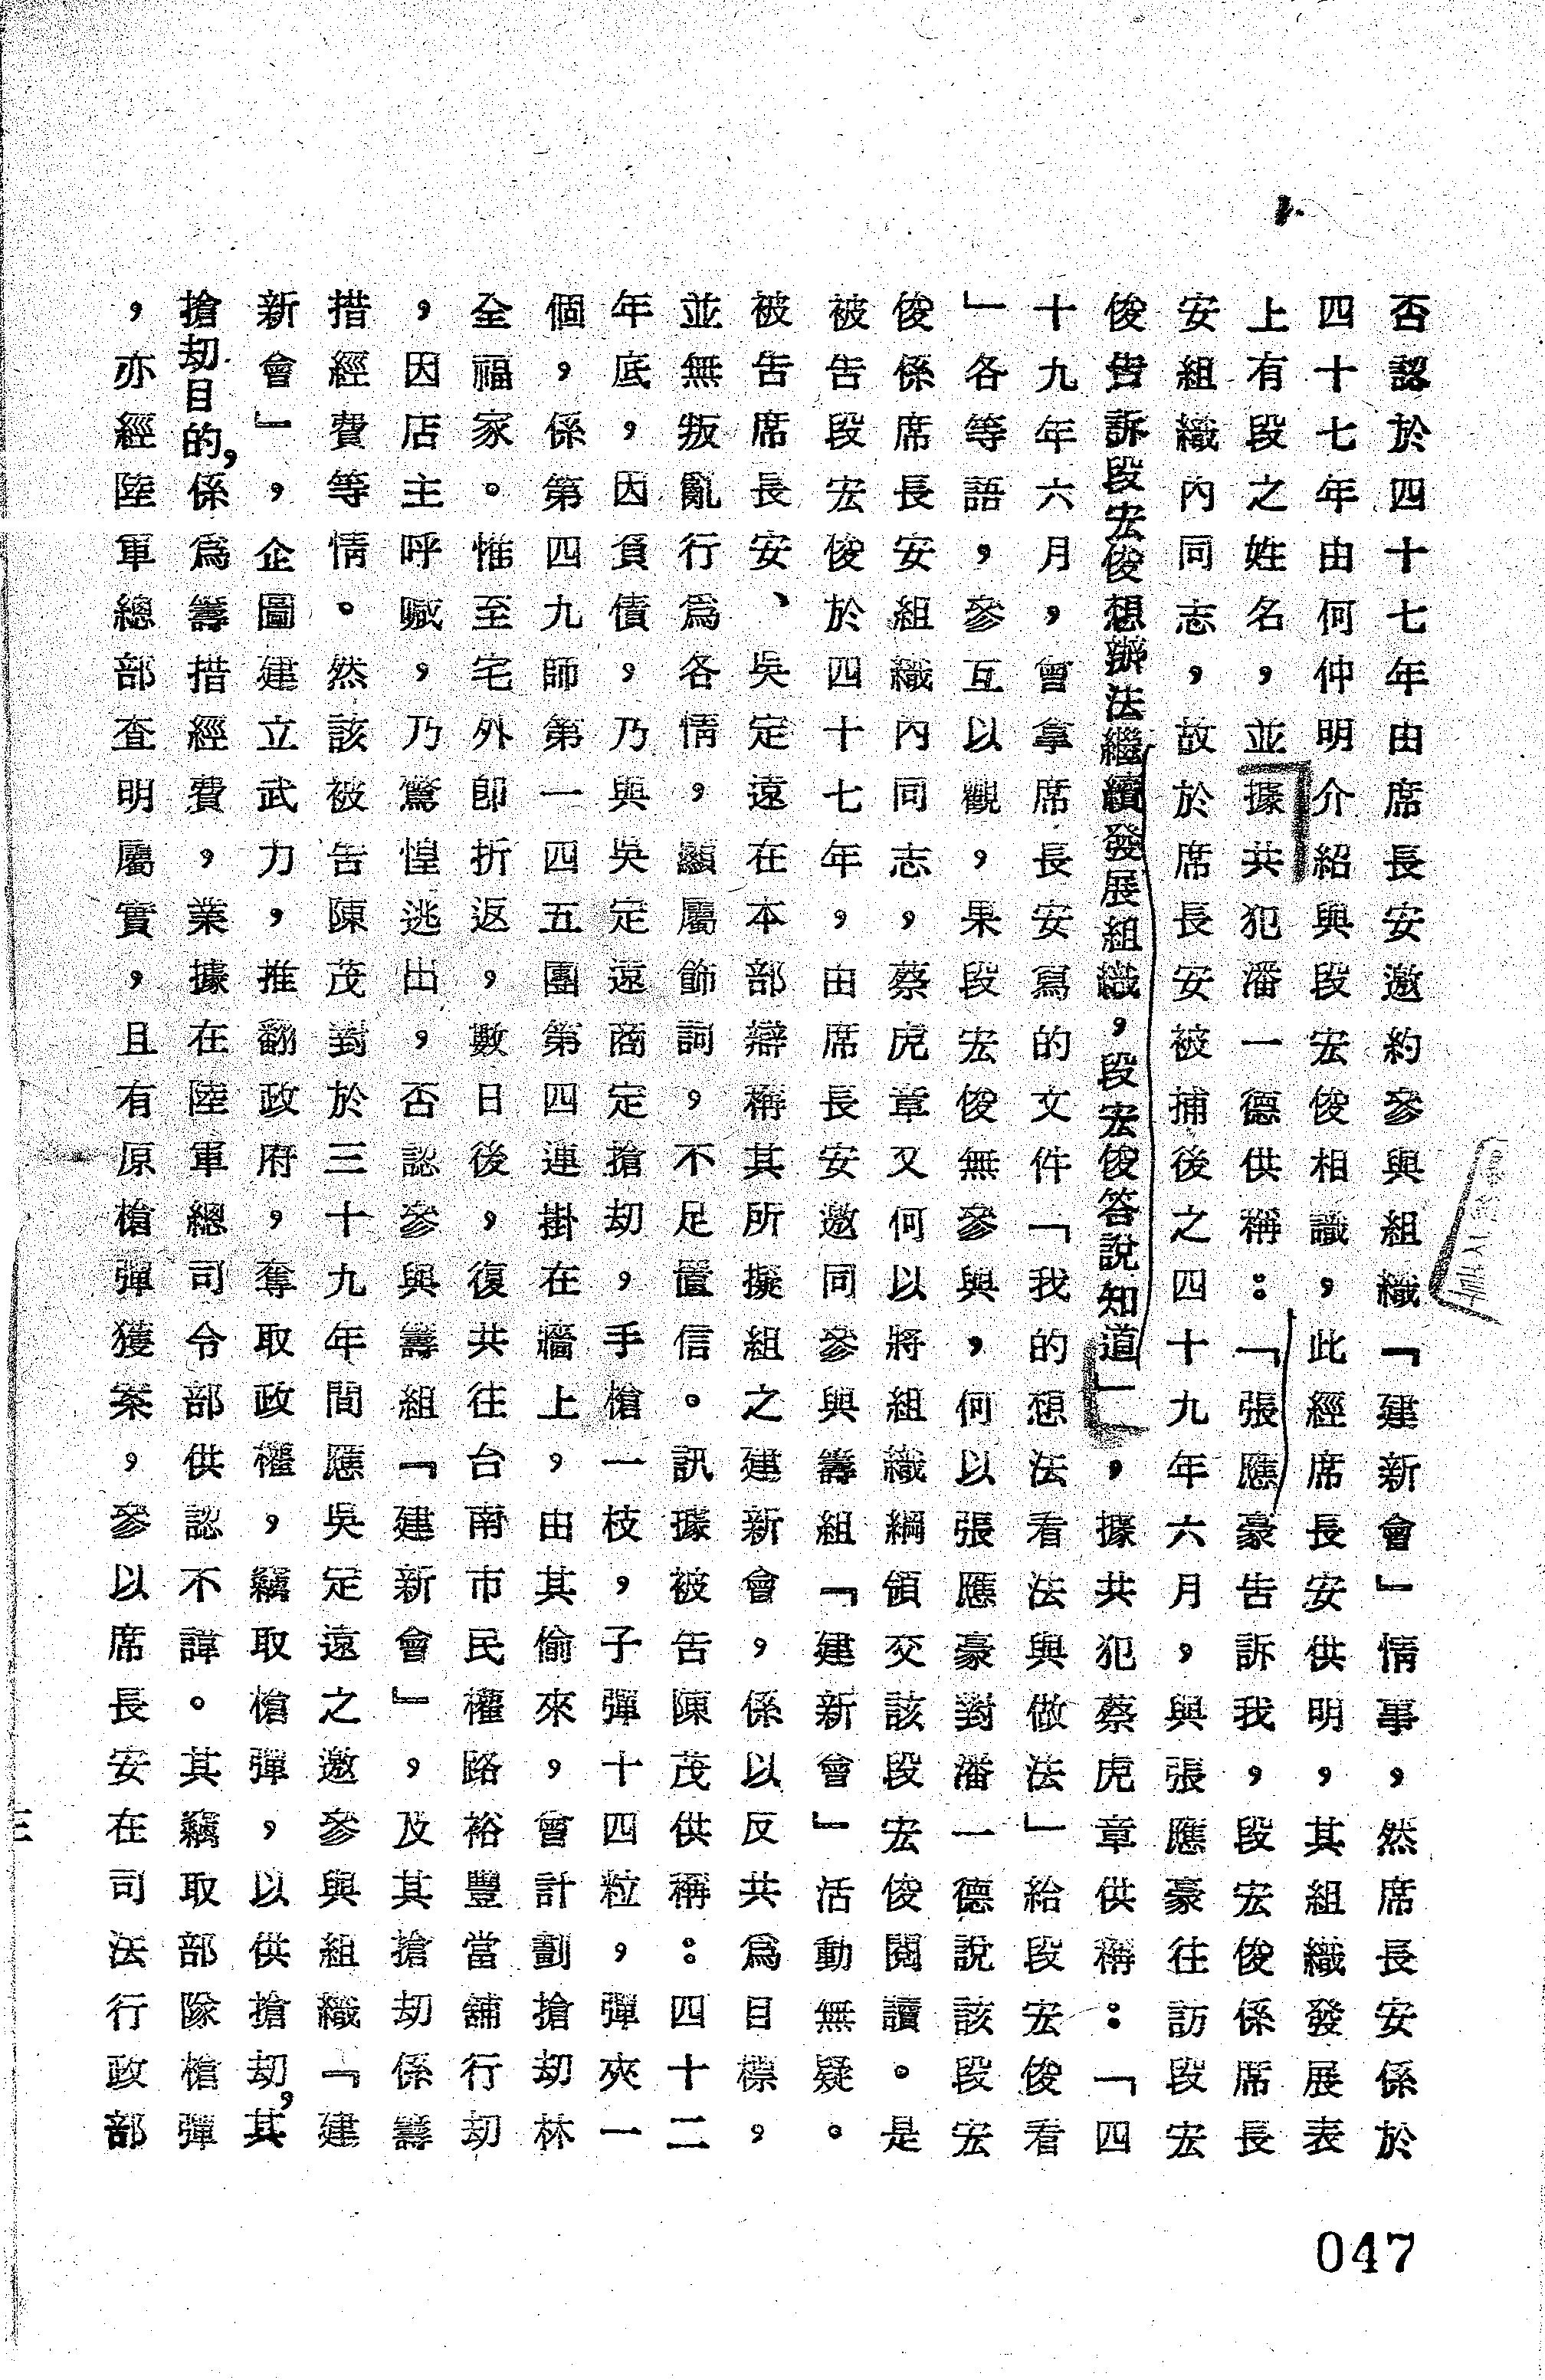 否認於四十七年由席長安邀約參與組織「建新會」情事，然席長安係於
四十七年由何仲明介紹與段宏俊相識，此經席長安供明，其組織發展表
上有段之姓名，並據共犯潘一德供稱：「張應豪告訴我，段宏俊係席長
安組織內同志，故於席長安被捕後之四十九年六月，與張應豪往訪段宏
俊告訴段宏俊想辦法繼續發展組織，段宏俊答說知道」，據共犯蔡虎章供稱：「四
十九年六月，會拿席長安寫的文件「我的想法看法與做法」給段宏俊看
」各等語，參互以觀，果段宏俊無參與，何以張應豪對潘一德說該段宏
俊係席長安組織內同志，蔡虎章又何以將組織綱領交該段宏俊閱讀。是
被告段宏俊於四十七年，由席長安邀同參與籌組「建新會」活動無疑。
被告席長安、吳定遠在本部辯稱其所擬組之建新會，係以反共為目標，
並無叛亂行為各情，顯屬飾詞，不足置信。訊據被告陳茂供稱：四十二
年底，因負債，乃與吳定遠商定搶劫，手槍一枝，子彈十四粒，彈夾一
個，係第四九師第一四五團第四連掛在牆上，由其偷來，會計劃搶劫林
全福家。惟至宅外即折返，數日後，復共往台南市民權路裕豐當舖行劫
，因店主呼喊，乃驚惶逃出，否認參與籌組「建新會」，及其搶劫係籌
措經費等情。然該被告陳茂對於三十九年間應吳定遠之邀參與組織「建
新會」，企圖建立武力，推翻政府，奪取政權，竊取槍彈，以供搶劫，其
搶劫目的，係為籌措經費，業據在陸軍總司令部供認不諱。其竊取部隊槍彈
，亦經陸軍總部查明屬實，且有原槍彈獲案，參以席長安在司法行政部
三
047